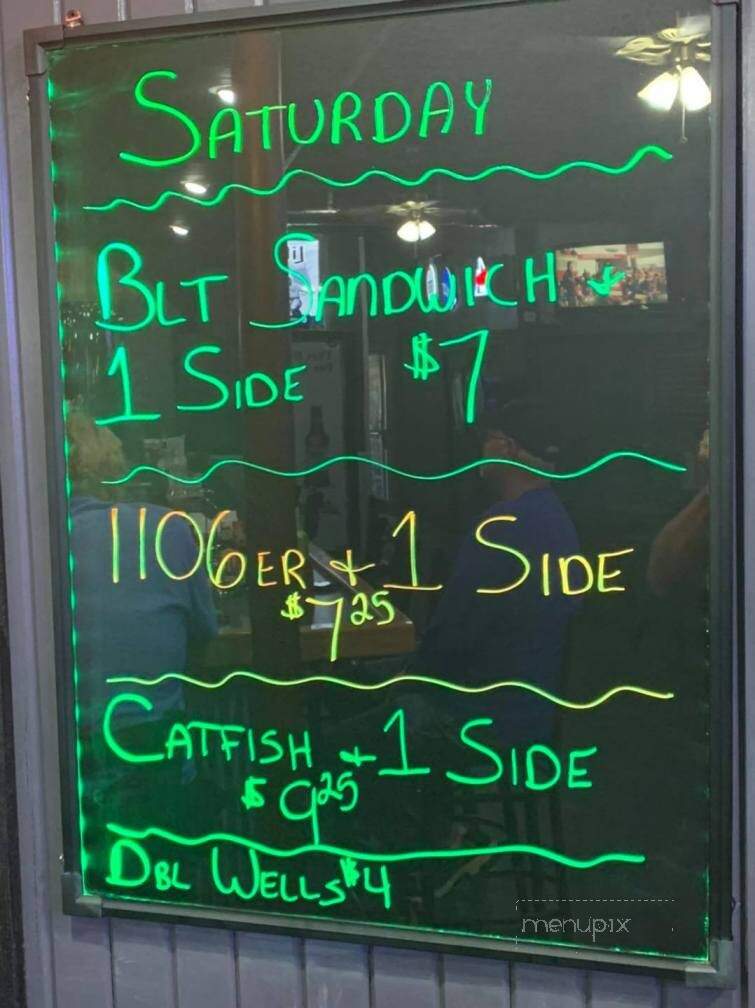 SATURDAY
BLT SANDWICH +
1 SIDE $7
1106ER + 1 SIDE
$7 25
CATFISH + 1 SIDE
$9 25
DBL WELLS $4
menupix